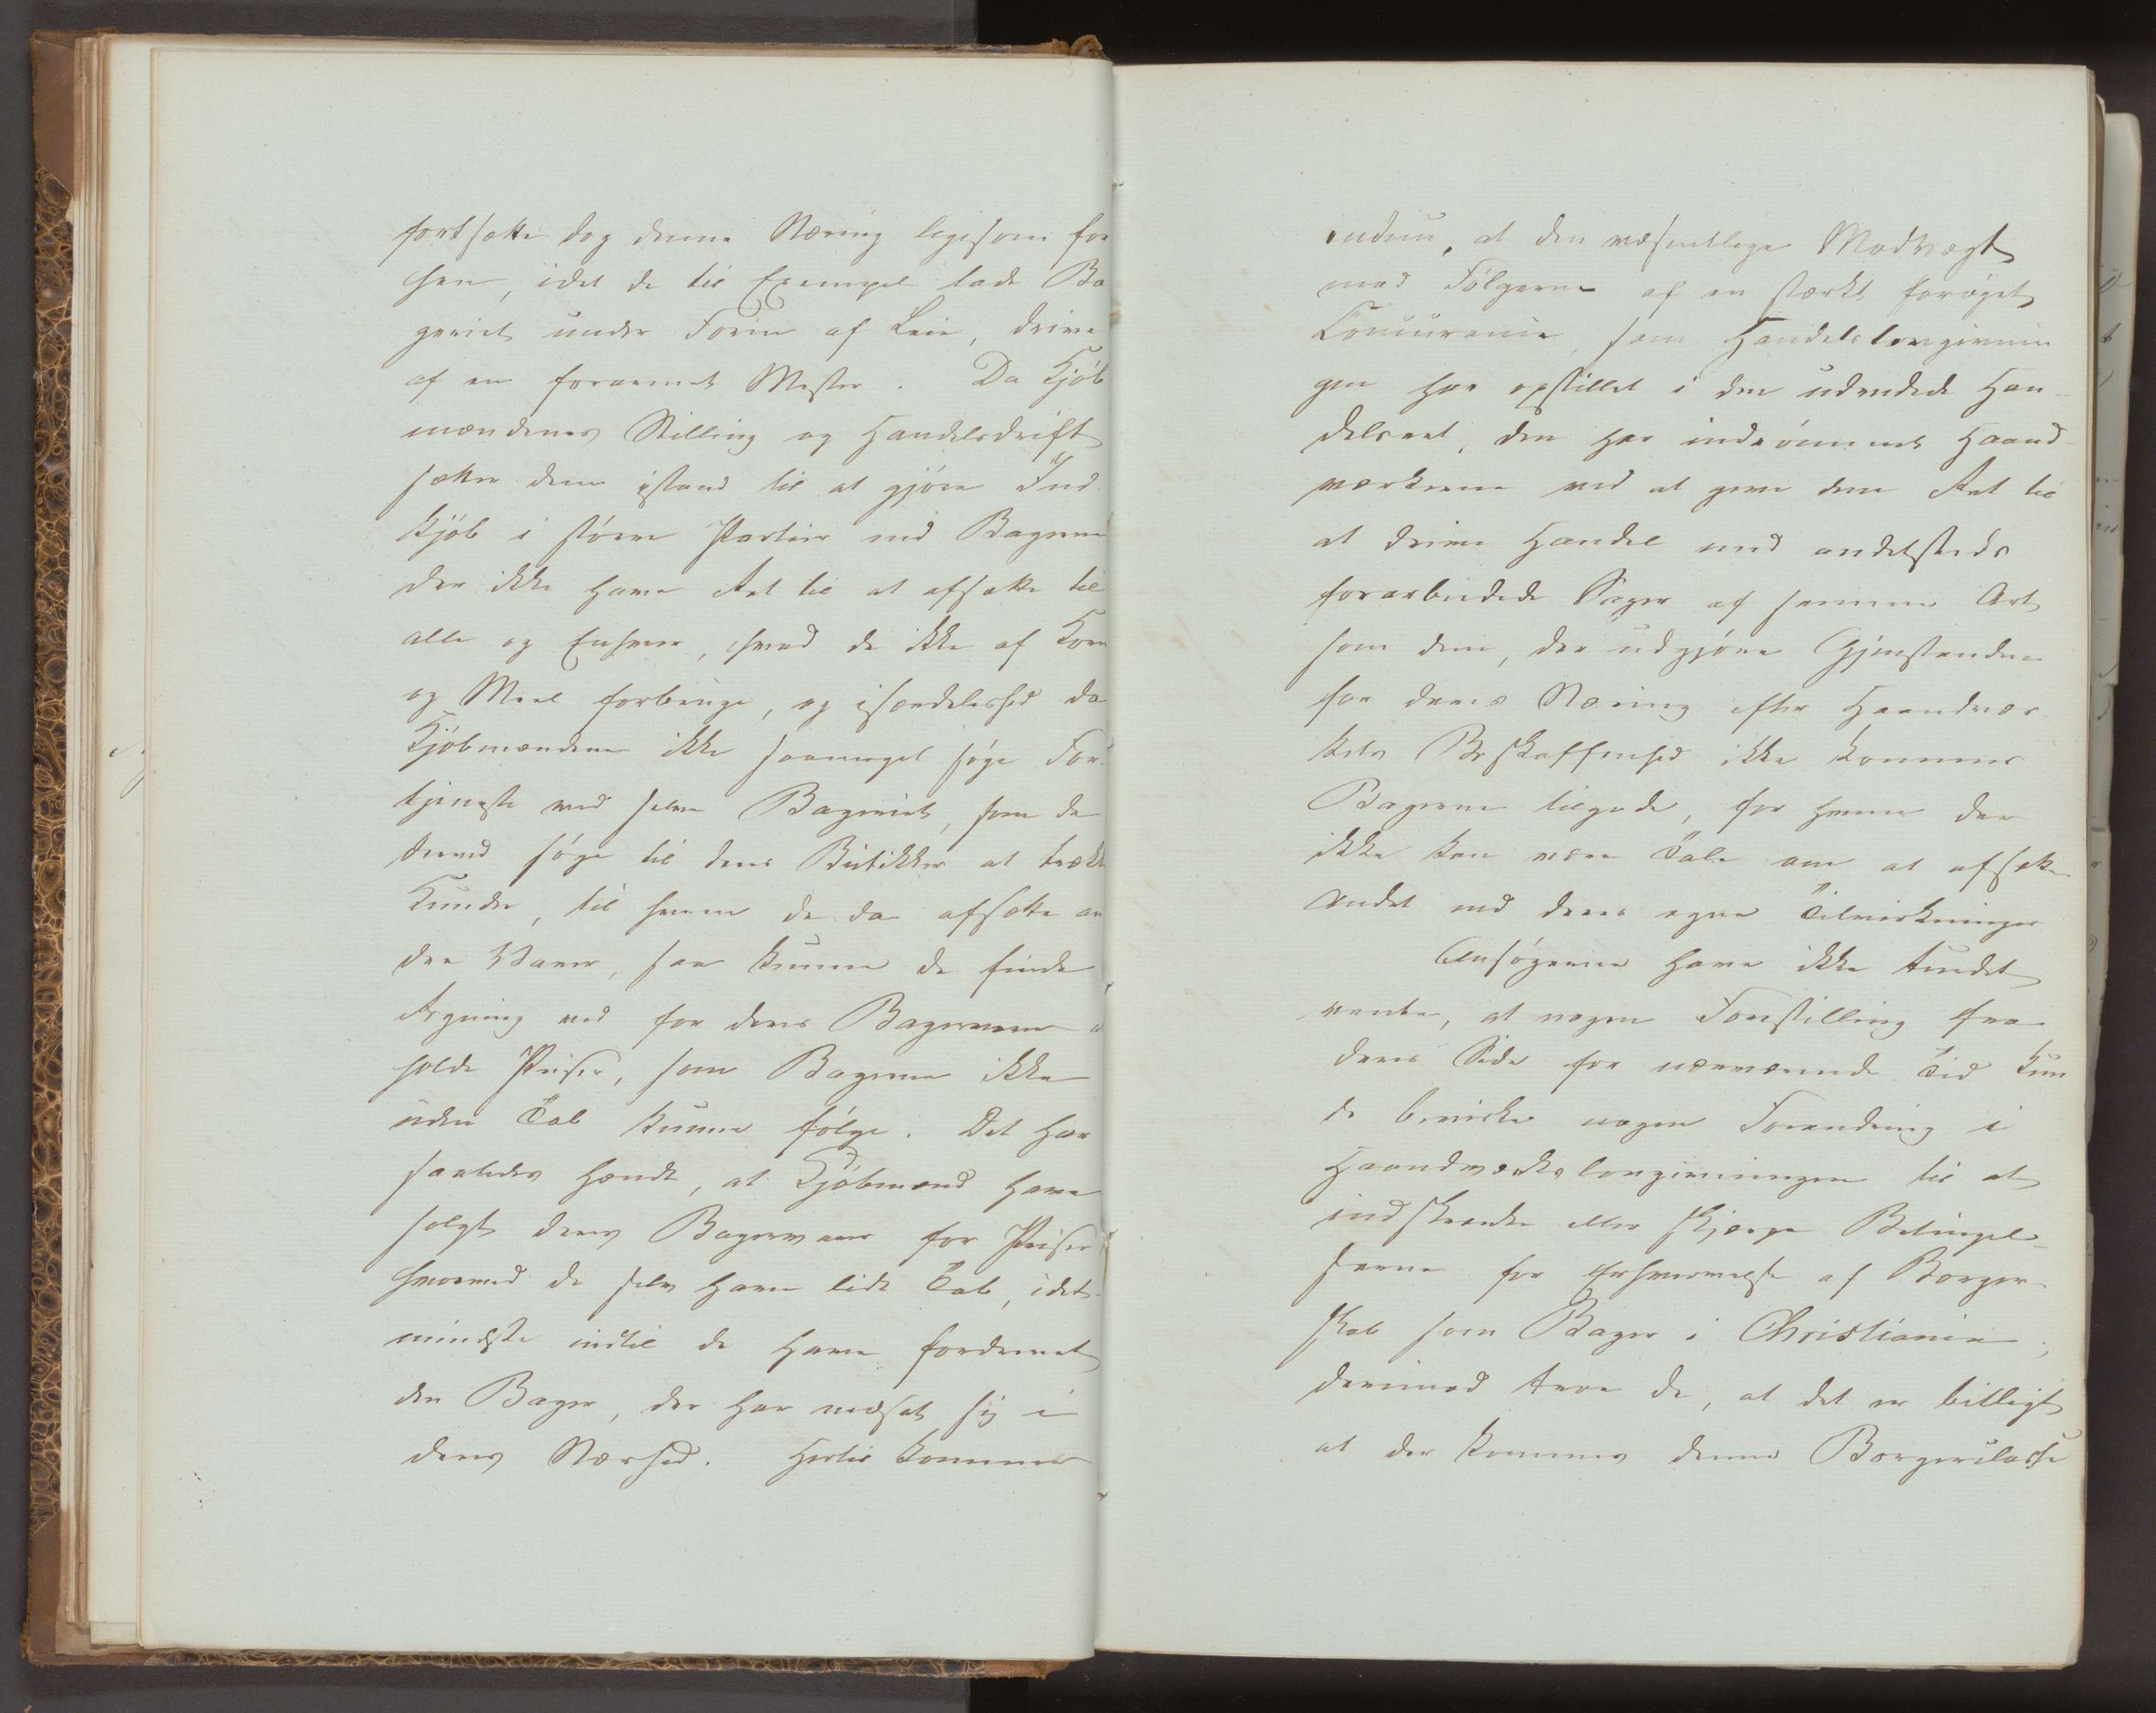 fortsætte dog denne Næring ligesom for
hen, idet de til Exempel lade Ba
geriet under Form af Leie, drive
af en forarmet Mester. Da Kjöb
mændenes Stilling og Handelsdrift
sætter dem istand til at gjöre Ind
kjöb i större Partier end Bagerne
der ikke have Ret til at afsætte til
alle og Enhver, hvad de ikke af Korn
og Meel forbruge, og isærdeleshed da
Kjöbmændene ikke saameget söge For
tjeneste ved selve Bageriet, som de
derved söge til deres Butikker at trække
Kunder, til hvem de da afsætte an
dre Varer, saa kunne de finde
Regning ved for deres Bagervarer a
holde Priser, som Bagerne ikke
uden Tab kunne fölge. Det har
saaledes hændt, at Kjöbmænd have
solgt deres Bagervarer for Priser
hvorved de selv have lidt Tab, idet
mindste indtil de have fordrevet
den Bager, der har nedsat sig i
deres Nærhed. Hertil kommer
endnu, at den væsentlige Modvægt
mod Fölgerne af en stærkt foröget
Concurrence, som Handelslovgivnin
gen har opstillet i den udvidede Han-
delsret, den har indrömmet Haand-
værkerne ved at give dem Ret til
at drive Handel med andetsteds
forarbeidede Sager af samme Art
som dem, der udgjöre Gjenstanden
for deres Næring efter Haandvær
kets Beskaffenhed ikke kommer
Bagerne tilgode, for hvem der
ikke kan være Tale om at afsætte
Andet end deres egne Tilvirkninger
Ansögerne have ikke turdet
vente, at nogen Forestilling fra
deres Side for nærværende Tid kun
de bevirke nogen Forandring i
Haandværkslovgivningen til at
indskrænke eller skjærpe Betingel-
serne for Erhvervelse af Borger-
skab som Bager i Christiania;
derimod troe de, at det er billigt
at der kommes denne Borgerclasse